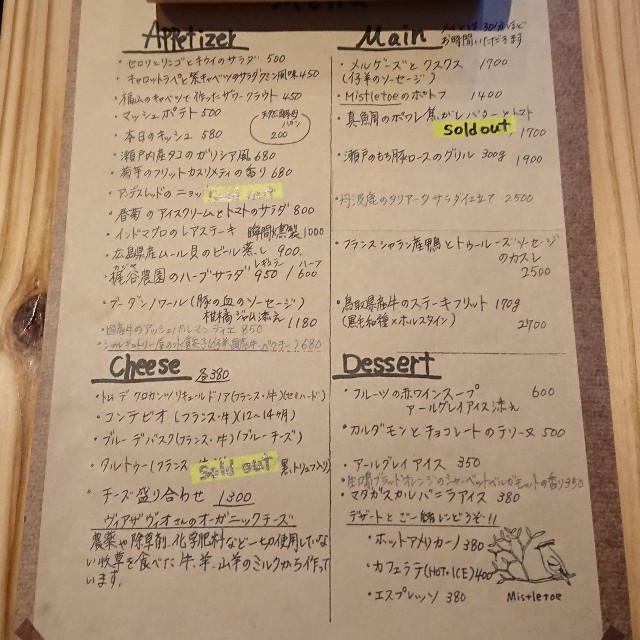 Appetizer
・セロリとリンゴとキウイのサラダ 500
・キャロットラペと紫キャベツのサラダクミン風味 450
・福山のキャベツで作ったザワークラウト 450
・マッシュポテト 500
天然酵母パン 200
・本日のキッシュ 580
・瀬戸内産タコのガリシア風 680
・菊芋のフリットカスリメティの香り 680
・アンデスレッドのニョッ
・春菊のアイスクリームとトマトのサラダ 800
・インドマグロのレアステーキ 瞬間燻製 1000
・広島県産ムール貝のビール蒸し 900
・梶谷農園のハーブサラダ レギュラー 950 / ハーフ 600
・ブーダンノワール(豚の血のソーセージ)
柑橘ジャム添え 1180
・国産牛のアッシェパルマンティエ 850
680
Cheese 各380
・トム デ クロカンツ
(フランス・牛)(セミハード)
・コンテビオ(フランス・牛)(12〜14ヶ月)
・ブルーデバスク(フランス・羊)(ブルーチーズ)
・タルトゥー(フランス
Sold out
黒トリュフ入り)
・チーズ盛り合わせ 1300
ヴィアザヴィオさんのオーガニックチーズ
農薬や除草剤、化学肥料など一切使用していな
い牧草を食べた牛、羊、山羊のミルクから作って
います。
Main
30分ほど
お時間いただきます
・メルゲーズとクスクス 1700
(仔羊のソーセージ)
・Mistletoeのポトフ 1400
・真鯛のポワレ 焦がしバターとトマト
Sold out 1700
・瀬戸のもち豚ロースのグリル 300g 1900
・丹波鹿のタリアータサラダ仕立て 2500
・フランスシャラン産鴨とトゥールーズソーセージ
のカスレ
2500
・鳥取県産牛のステーキフリット 170g
(黒毛和種×ホルスタイン) 2700
Dessert
・フルーツの赤ワインスープ 600
アールグレイアイス添え
・カルダモンとチョコレートのテリーヌ 500
・アールグレイアイス 350
ブラッドオレンジのシャーベットベルガモットの香り 350
・マダガスカルバニラアイス 380
デザートとご一緒にどうぞ!!
・ホットアメリカーノ 380
・カフェラテ(HOT・ICE) 400
・エスプレッソ 380
Mistletoe